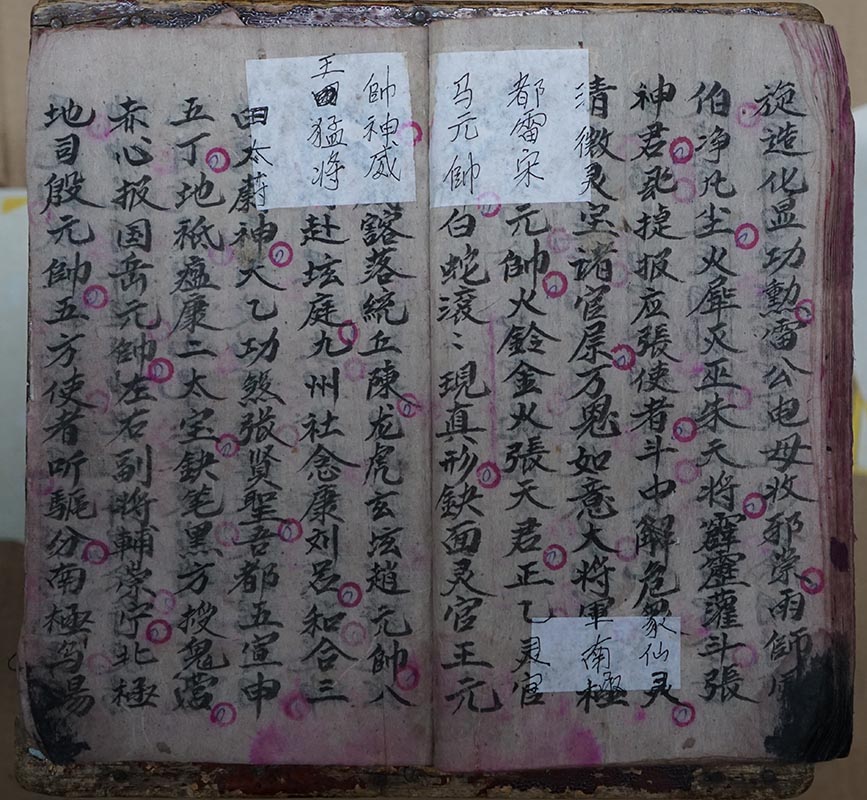 旋造化显功勳雷公电母收邪祟雨師风
伯净凡尘火犀灭巫朱天将霹雳灌斗張
神君敢捷报应張使者斗中解危象仙灵
清微灵宝诸官屎万鬼如意大将军南極
都雷宋元帥火鈴金火張天君正乙灵官
马元帥白蛇滚〻現真形鈌面灵官王元
帥神威豁落統丘陳龙虎玄坛趙元帥八
王猛将赴坛庭九州社念康刘忌和合三
田太蔚神大乙功煞張賢聖吾都五宣申
五丁地祇瘟康二太宝鈌笔黑方授鬼营
赤心报国岳元帥左右副将輔崇宁北極
地司殷元帥五方使者听驅分南極笃昜